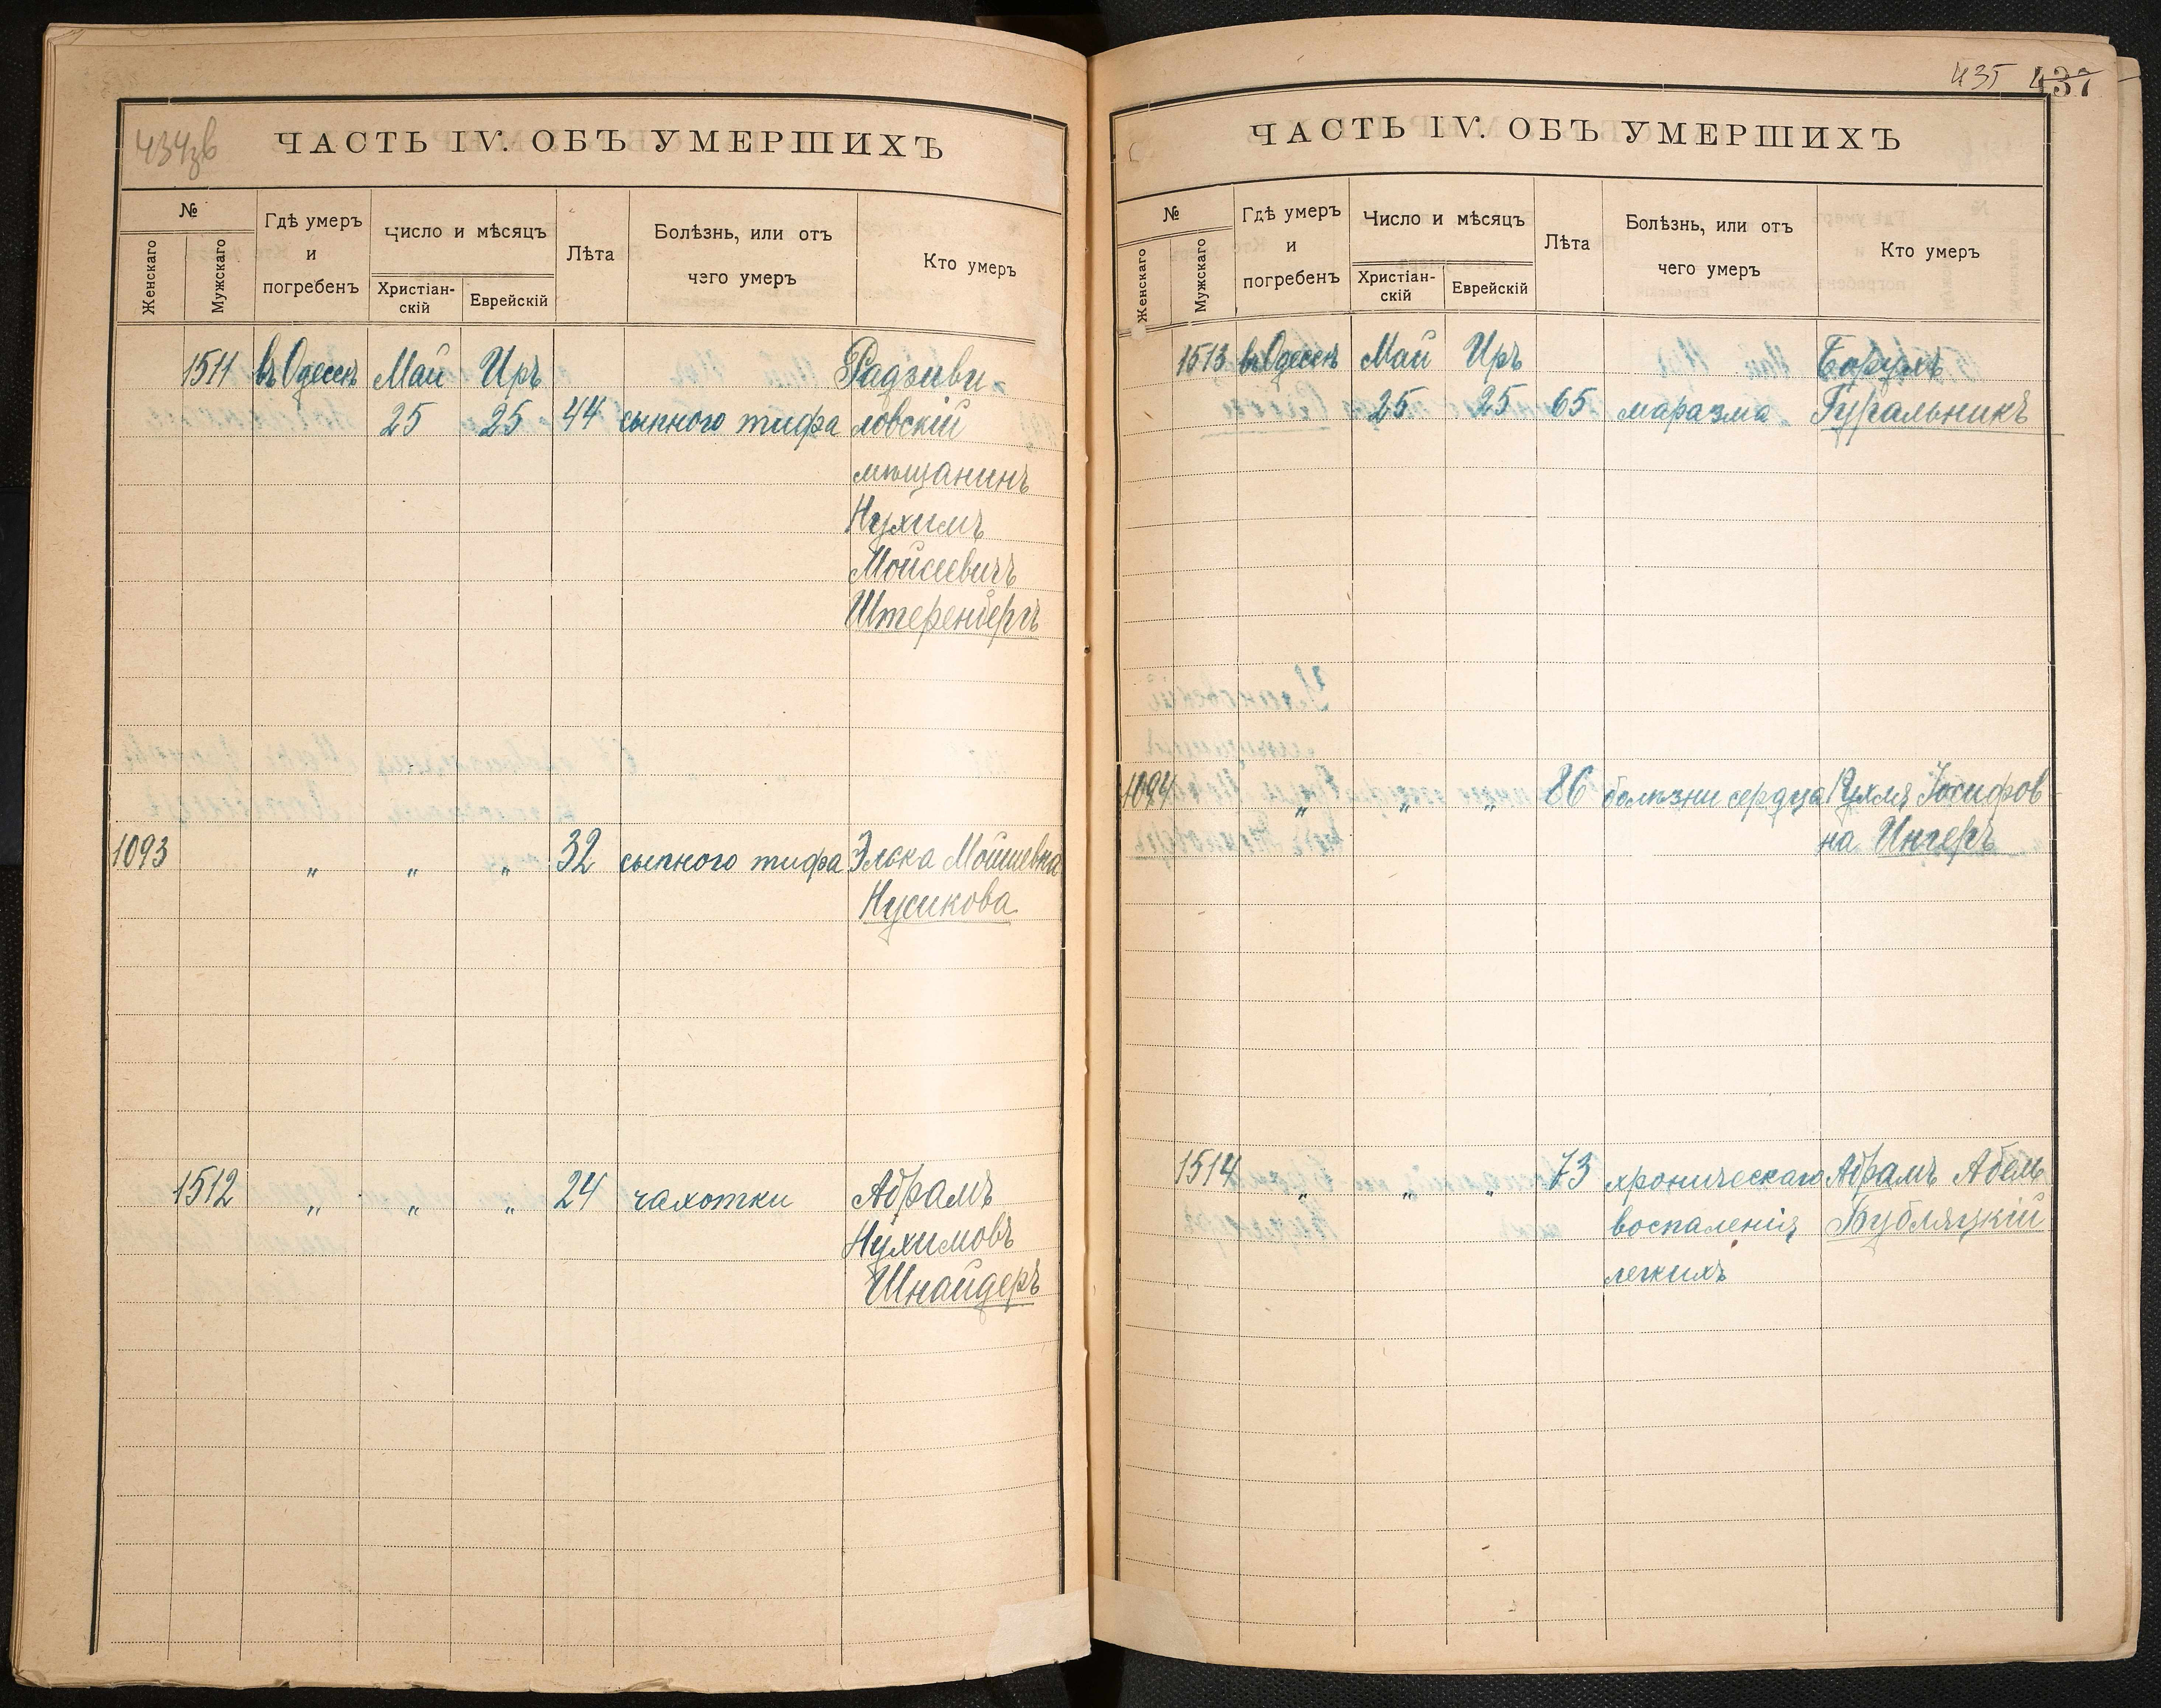 434зв
ЧАСТЬ IV. ОБЪ УМЕРШИХЪ
№
Женскаго
Мужскаго
Гдѣ умеръ
и
погребенъ
Число и мѣсяцъ
Христіан-
скій
Еврейскій
Лѣта
Болѣзнь, или отъ
чего умеръ
Кто умеръ
1511 въ Одессѣ Май Иръ Радзиви-
25 25 44 сыпного тифа ловскій
мѣщанинъ
Нухимъ
Мойсеевичъ
Штеренбергъ
1093 „ „ „ 32 сыпного тифа Элька Мойшевна
Нусикова
1512 „ „ „ 24 чахотки Абрамъ
Нухимовъ
Шнайдеръ
435 437
ЧАСТЬ IV. ОБЪ УМЕРШИХЪ
№
Женскаго
Мужскаго
Гдѣ умеръ
и
погребенъ
Число и мѣсяцъ
Христіан-
скій
Еврейскій
Лѣта
Болѣзнь, или отъ
чего умеръ
Кто умеръ
1513 въ Одессѣ Май Иръ Борухъ
25 25 65 маразма Гуральникъ
1094 „ „ „ 86 болѣзни сердца Рухля Іосифов
на Унгеръ
1514 „ „ „ 73 хроническаго Абрамъ Абель
воспаленія Бубляцкій
легкихъ